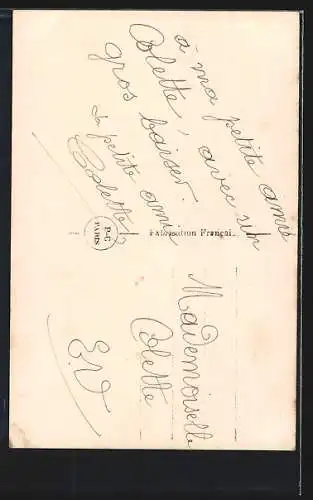 à ma petite amie
Colette, avec un
gros baiser.
Sa petite amie
Colette
P-C
PARIS
Fabrication Françai
Mademoiselle
Colette
E.V